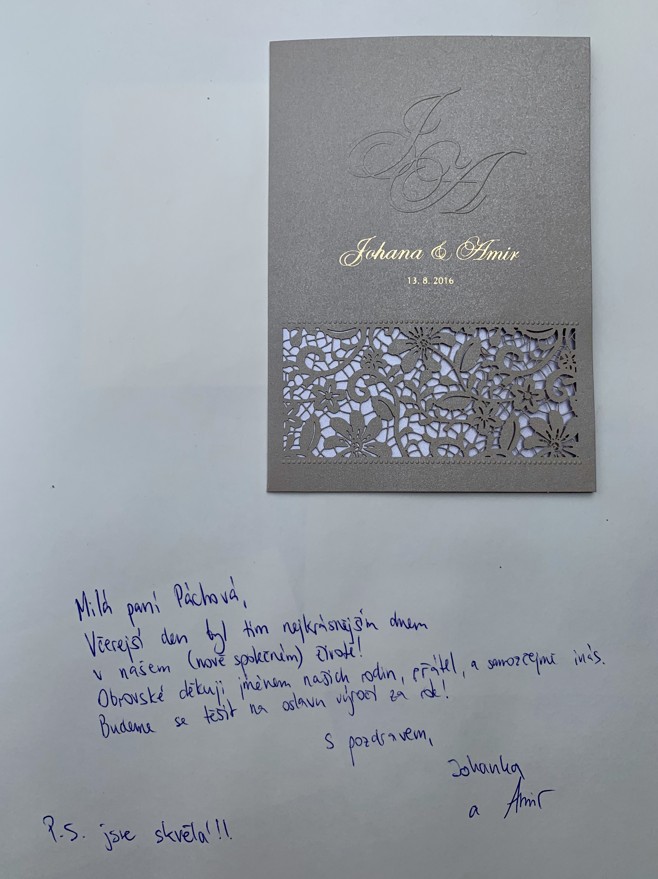 JA
Johana & Amir
13. 8. 2016
Milá paní Páchová,
Včerejší den byl tím nejkrásnějším dnem
v našem (nově společném) životě!
Obrovské děkuji jménem našich rodin, přátel, a samozřejmě i nás.
Budeme se těšit na oslavu výročí za rok!
S pozdravem,
Johanka
a Amir
P.S. jste skvělá!!!